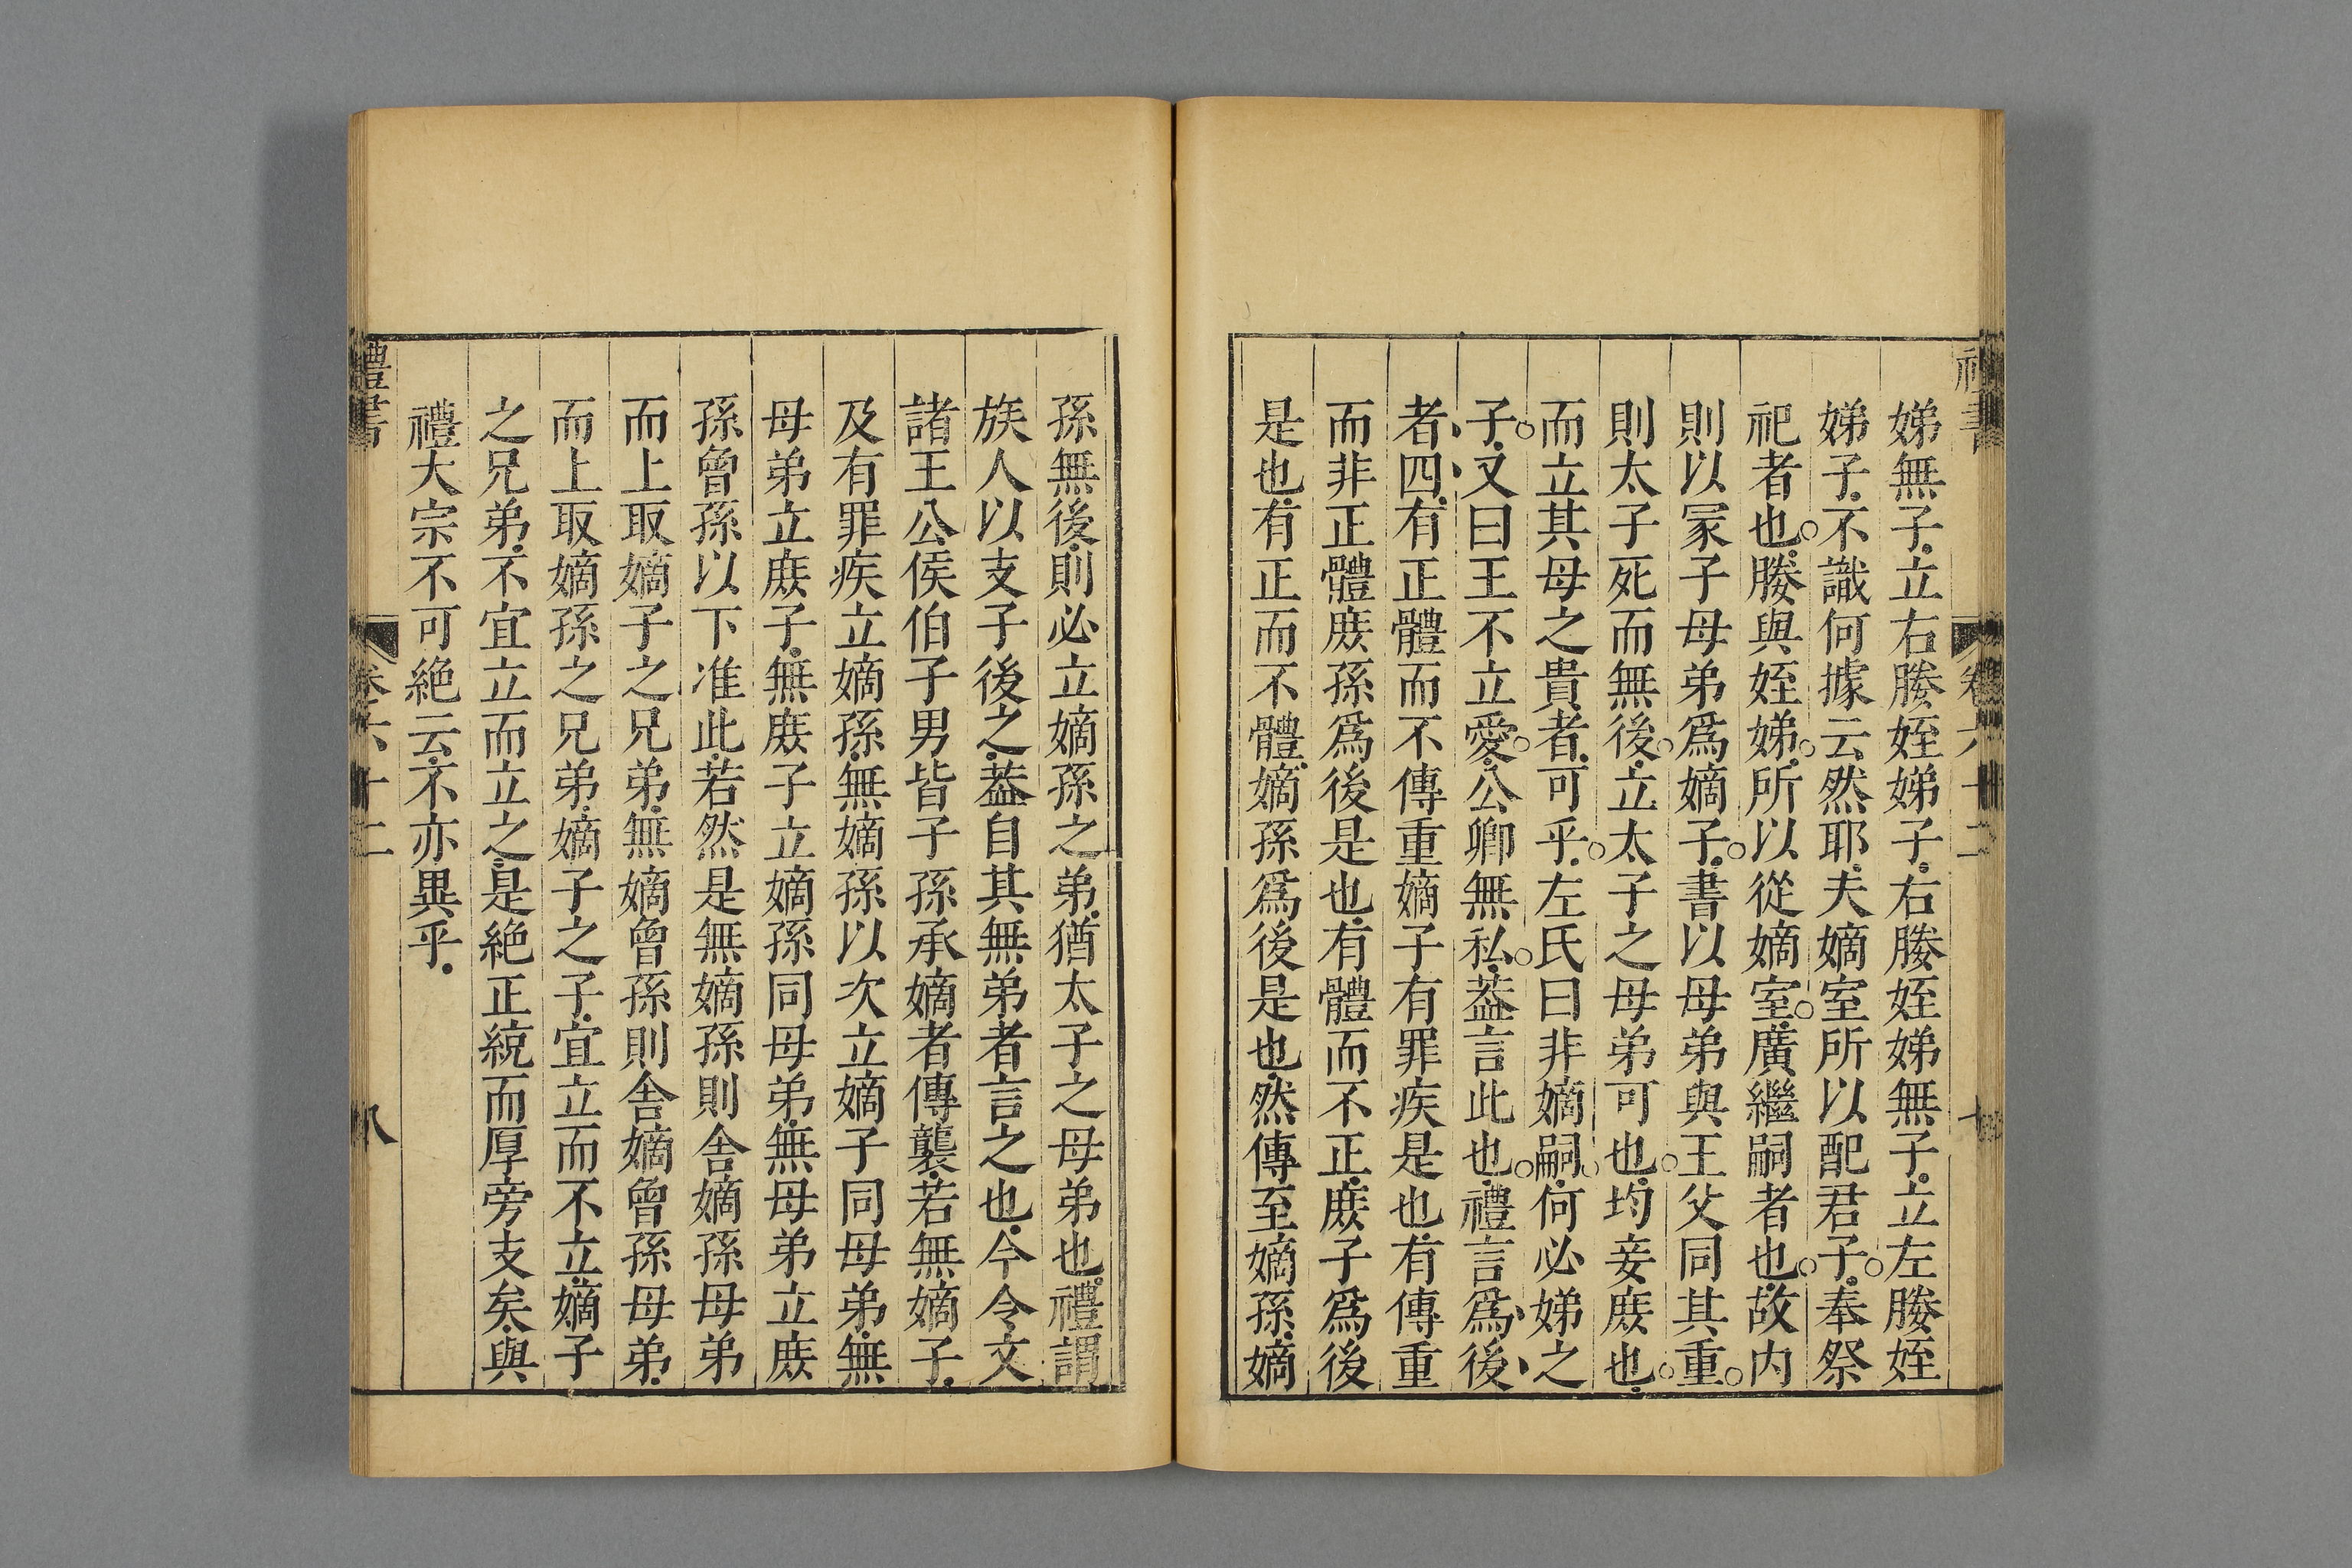 禮書 卷六十二
娣無子立右媵姪娣子右媵姪娣無子立左媵姪
娣子不識何據云然耶夫嫡室所以配君子奉祭
祀者也媵與姪娣所以從嫡室廣繼嗣者也故内
則以冡子母弟爲嫡子書以母弟與王父同其重
則太子死而無後立太子之母弟可也均妾庻也
而立其母之貴者可乎左氏曰非嫡嗣何必娣之
子又曰王不立愛公卿無私葢言此也禮言爲後
者四有正體而不傳重嫡子有罪疾是也有傳重
而非正體庻孫爲後是也有體而不正庻子爲後
是也有正而不體嫡孫爲後是也然傳至嫡孫嫡
孫無後則必立嫡孫之弟猶太子之母弟也禮謂
族人以支子後之葢自其無弟者言之也今令文
諸王公侯伯子男皆子孫承嫡者傳襲若無嫡子
及有罪疾立嫡孫無嫡孫以次立嫡子同母弟無
母弟立庻子無庻子立嫡孫同母弟無母弟立庻
孫曾孫以下准此若然是無嫡孫則舍嫡孫母弟
而上取嫡子之兄弟無嫡曾孫則舍嫡曾孫母弟
而上取嫡孫之兄弟嫡子之子宜立而不立嫡子
之兄弟不宜立而立之是絶正統而厚旁支矣與
禮大宗不可絶云不亦異乎
禮書 卷六十二 八